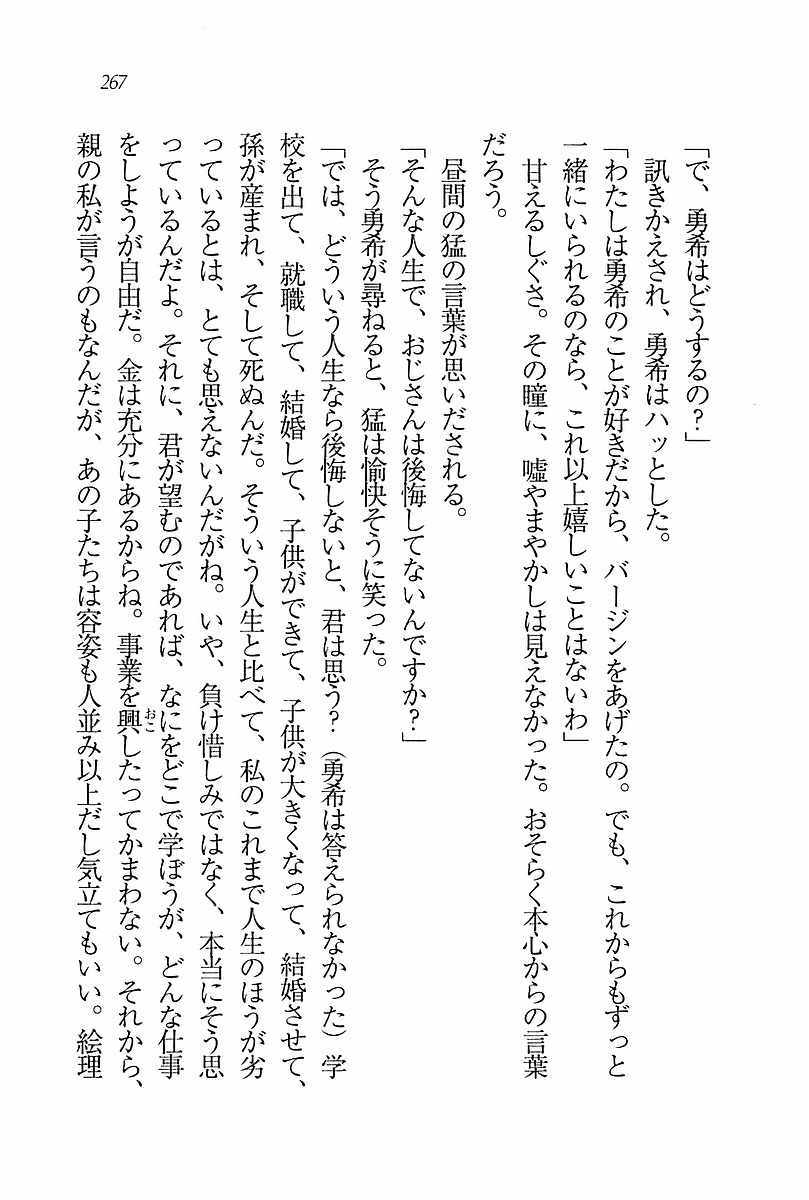 267
「で、勇希はどうするの？」
訊きかえされ、勇希はハッとした。
「わたしは勇希のことが好きだから、バージンをあげたの。でも、これからもずっと
一緒にいられるのなら、これ以上嬉しいことはないわ」
甘えるしぐさ。その瞳に、嘘やまやかしは見えなかった。おそらく本心からの言葉
だろう。
昼間の猛の言葉が思いだされる。
「そんな人生で、おじさんは後悔してないんですか？」
そう勇希が尋ねると、猛は愉快そうに笑った。
「では、どういう人生なら後悔しないと、君は思う？（勇希は答えられなかった）学
校を出て、就職して、結婚して、子供ができて、子供が大きくなって、結婚させて、
孫が産まれ、そして死ぬんだ。そういう人生と比べて、私のこれまで人生のほうが劣
っているとは、とても思えないんだがね。いや、負け惜しみではなく、本当にそう思
っているんだよ。それに、君が望むのであれば、なにをどこで学ぼうが、どんな仕事
をしようが自由だ。金は充分にあるからね。事業を興したってかまわない。それから、
おこ
親の私が言うのもなんだが、あの子たちは容姿も人並み以上だし気立てもいい。絵理